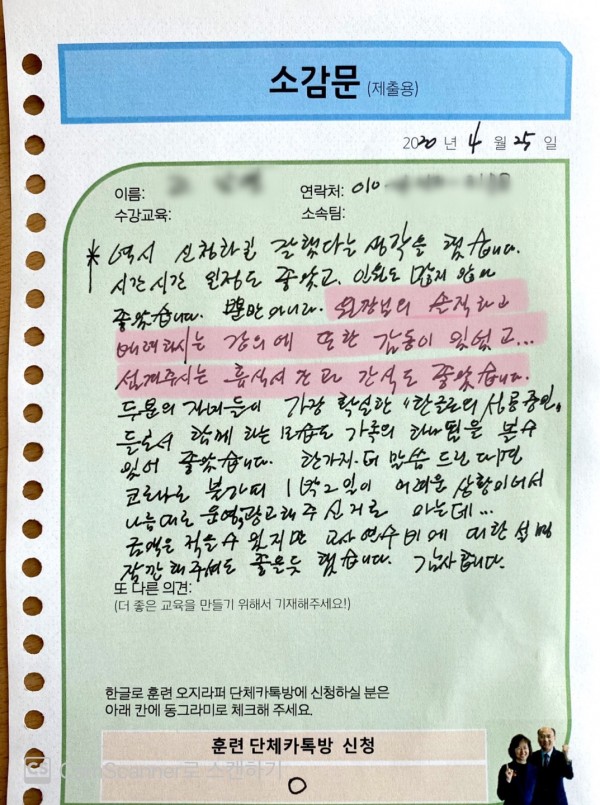 소감문 (제출용)
2020 년 4 월 25 일
이름:
연락처: 010
수강교육:
소속팀:
* 역시 신청하길 잘했다는 생각을 했습니다.
시간시간 일정도 좋았고, 인원도 많지 않아
좋았습니다. 뿐만 아니라. 원장님의 솔직하고
배려하시는 강의에 또한 감동이 있었고...
섬겨주시는 휴식시간과 간식도 좋았습니다.
두분의 자녀들이 가장 확실한 "한글로의 산 증인"
들로서 함께 하는 모습도 가족의 하나됨을 볼수
있어 좋았습니다. 한가지 더 말씀 드린다면
코로나로 불가피 1박2일이 어려운 상황이어서
나름대로 운영, 광고해주신거로 아는데...
금액은 적을수 있지만 교사연수비에 대한 설명
잠깐 해주셔도 좋을듯 했습니다. 감사합니다.
또 다른 의견:
(더 좋은 교육을 만들기 위해서 기재해주세요!)
한글로 훈련 오지라퍼 단체카톡방에 신청하실 분은
아래 칸에 동그라미로 체크해 주세요.
훈련 단체카톡방 신청
O
CS CamScanner로 스캔하기